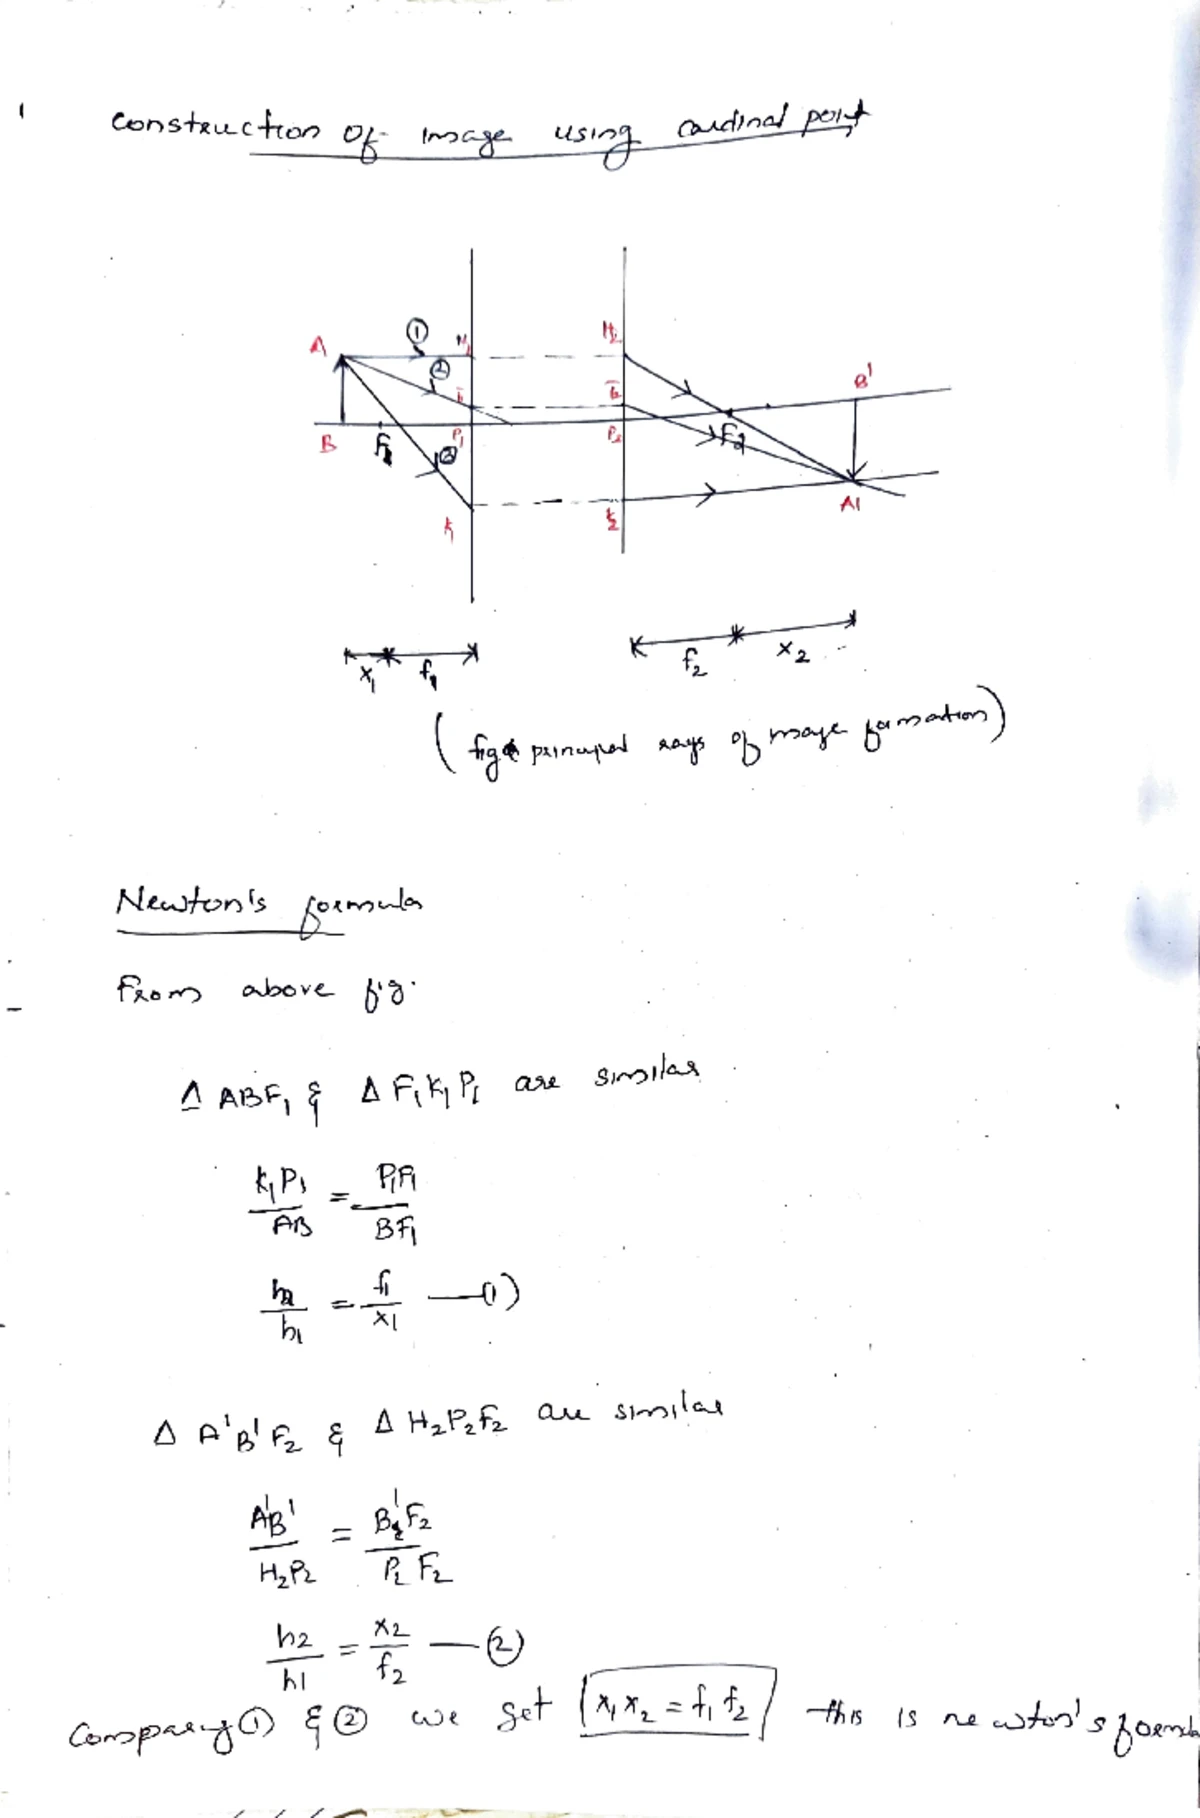 Construction of image using cardinal point
①
A
H₁
H₂
②
B'
B
F₁
P₁
P₂
F₂
③
K₁
K₂
A'
x₁
f₁
f₂
x₂
(fig principal rays of image formation)
Newton's formula
From above fig.
Δ ABF₁ & Δ F₁K₁P₁ are similar
K₁P₁/AB = P₁F₁/BF₁
h₂/h₁ = f₁/x₁ —(1)
Δ A'B'F₂ & Δ H₂P₂F₂ are similar
A'B'/H₂P₂ = B'F₂/P₂F₂
h₂/h1 = x₂/f₂ —②
Compary ① & ② we get x₁x₂ = f₁f₂ this is newton's formula